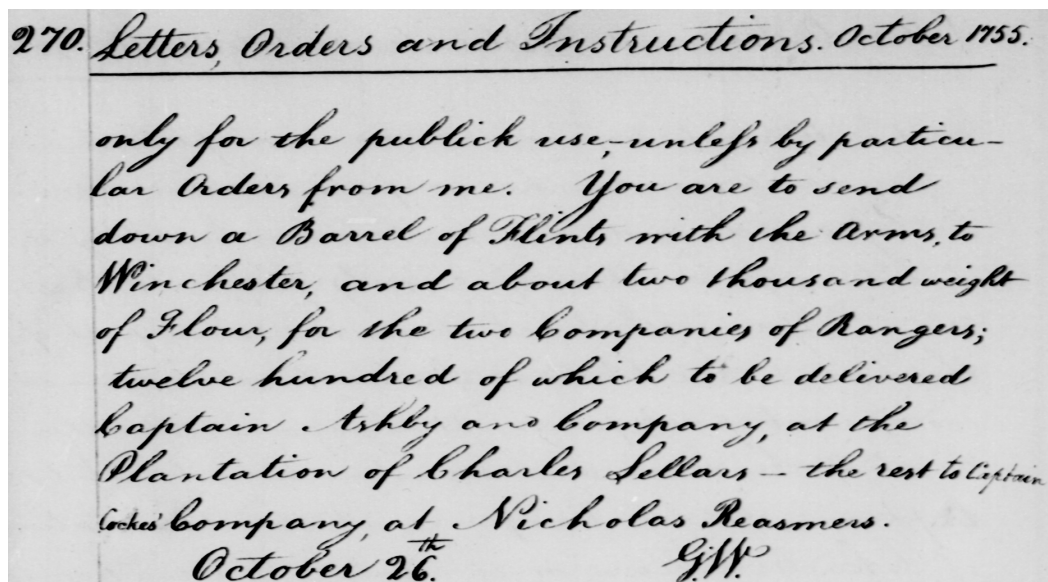 270. Letters, Orders and Instructions. October 1755.
only for the publick use, - unless by particu-
lar Orders from me. You are to send
down a Barrel of Flints with the Arms, to
Winchester, and about two thousand weight
of Flour, for the two Companies of Rangers;
twelve hundred of which to be delivered
Captain Ashby and Company, at the
Plantation of Charles Sellars - the rest to Captain
Cockes' Company, at Nicholas Reasmers.
October 26th. G.W.